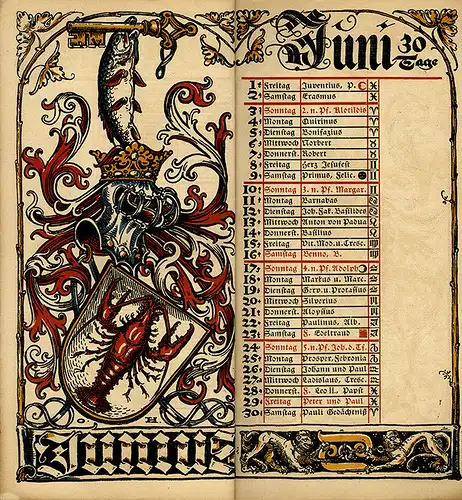 Juni 30 Tage
1. Freitag Juventius, P.
2. Samstag Erasmus
3. Sonntag 2. n. Pf. Klotildis
4. Montag Quirinus
5. Dienstag Bonifazius
6. Mittwoch Norbert
7. Donnerst. Robert
8. Freitag Herz Jesufest
9. Samstag Primus, Felic.
10. Sonntag 3. n. Pf. Margar.
11. Montag Barnabas
12. Dienstag Joh. Fak. Basilides
13. Mittwoch Anton von Padua
14. Donnerst. Basilius
15. Freitag Vit. Mod. u. Cresc.
16. Samstag Benno, B.
17. Sonntag 4. n. Pf. Adolph
18. Montag Markus u. Marc.
19. Dienstag Gerv. u. Protasius
20. Mittwoch Silverius
21. Donnerst. Aloysius
22. Freitag Paulinus, Alb.
23. Samstag S. Edeltraud
24. Sonntag 5. n. Pf. Joh. d. Tf.
25. Montag Prosper, Febronia
26. Dienstag Johann und Paul
27. Mittwoch Ladislaus, Cresc.
28. Donnerst. S. Leo II. Papst
29. Freitag Peter und Paul
30. Samstag Pauli Gedächtniß